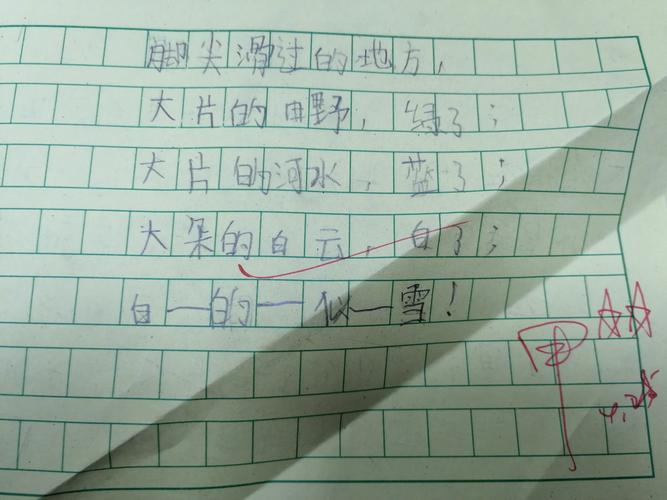 脚尖滑过的地方，
大片的田野，绿了；
大片的河水，蓝了；
大朵的白云，白了；
白一的一似一雪！
甲